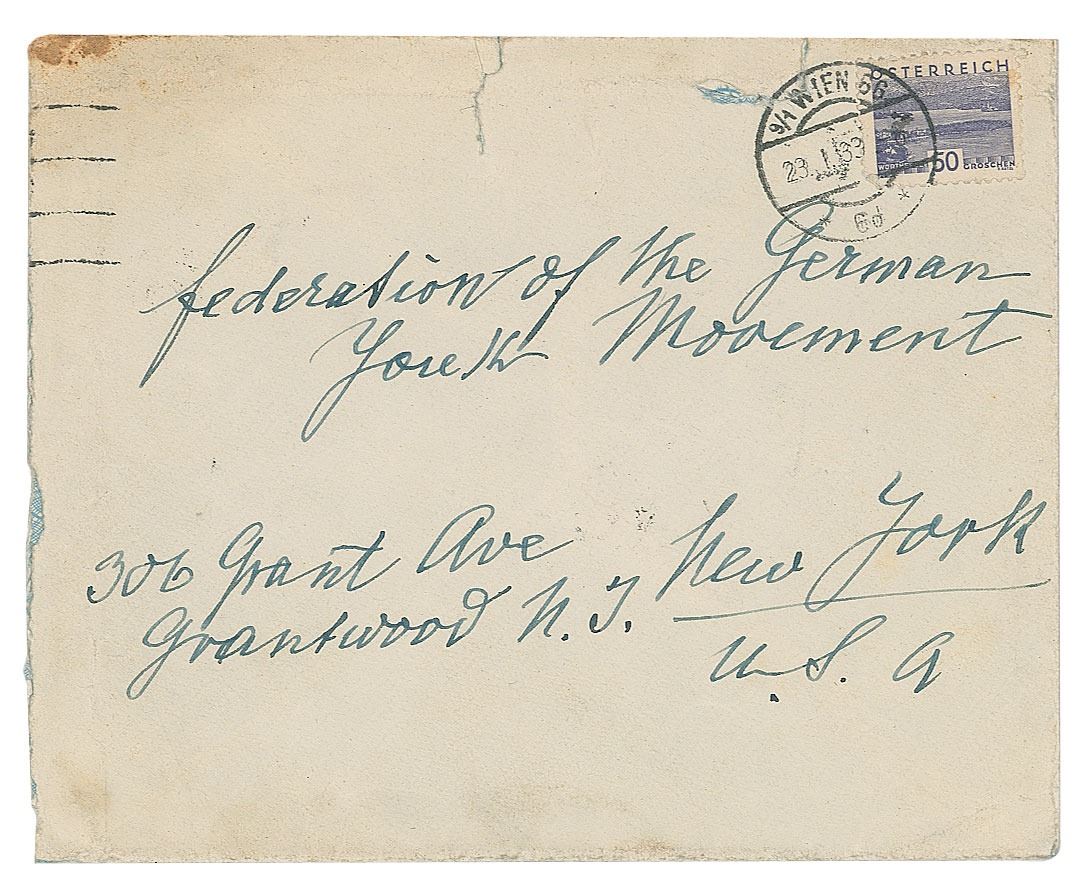 ÖSTERREICH
9/1 WIEN 66
23.I.33
WÖRTHERSEE 50 GROSCHEN
6d
federation of the German
Youth Movement
306 Grant Ave New York
Grantwood N. J.
U. S. A